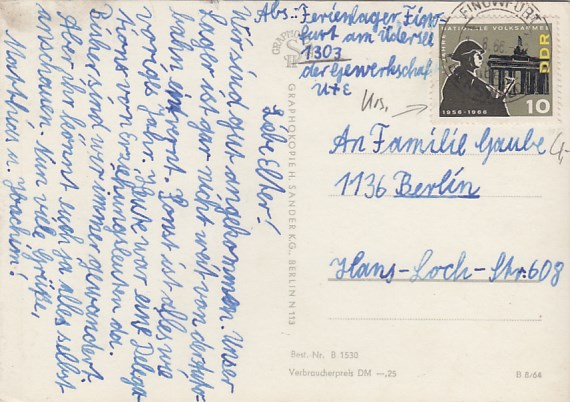 Abs.: Ferienlager Fino-
furt am Üdersee
1303
der Gewerkschaf
U+E
Urs.
FINOWFURT
10 JAHRE NATIONALE VOLKSARMEE
DDR
1956-1966
10
An Familie Gaube
1136 Berlin
Hans-Loch-Str. 608
Liebe Eltern!
Wir sind gut angekommen. Unser
Lager ist nur nicht weit von der Auto-
bahn entfernt. Sonst ist alles wie
voriges Jahr. Heute war eine Delega-
tions von Erziehungsleuten da.
Bisher sind wir immer gewandert
Aber ihr könnt euch ja alles selbst
anschauen. Nun viele Grüße,
Matthias u. Joachim!
GRAPHOKOPIE H. SANDER K.G., BERLIN N 113
Best.-Nr. B 1530
Verbraucherpreis DM —,25
B 8/64